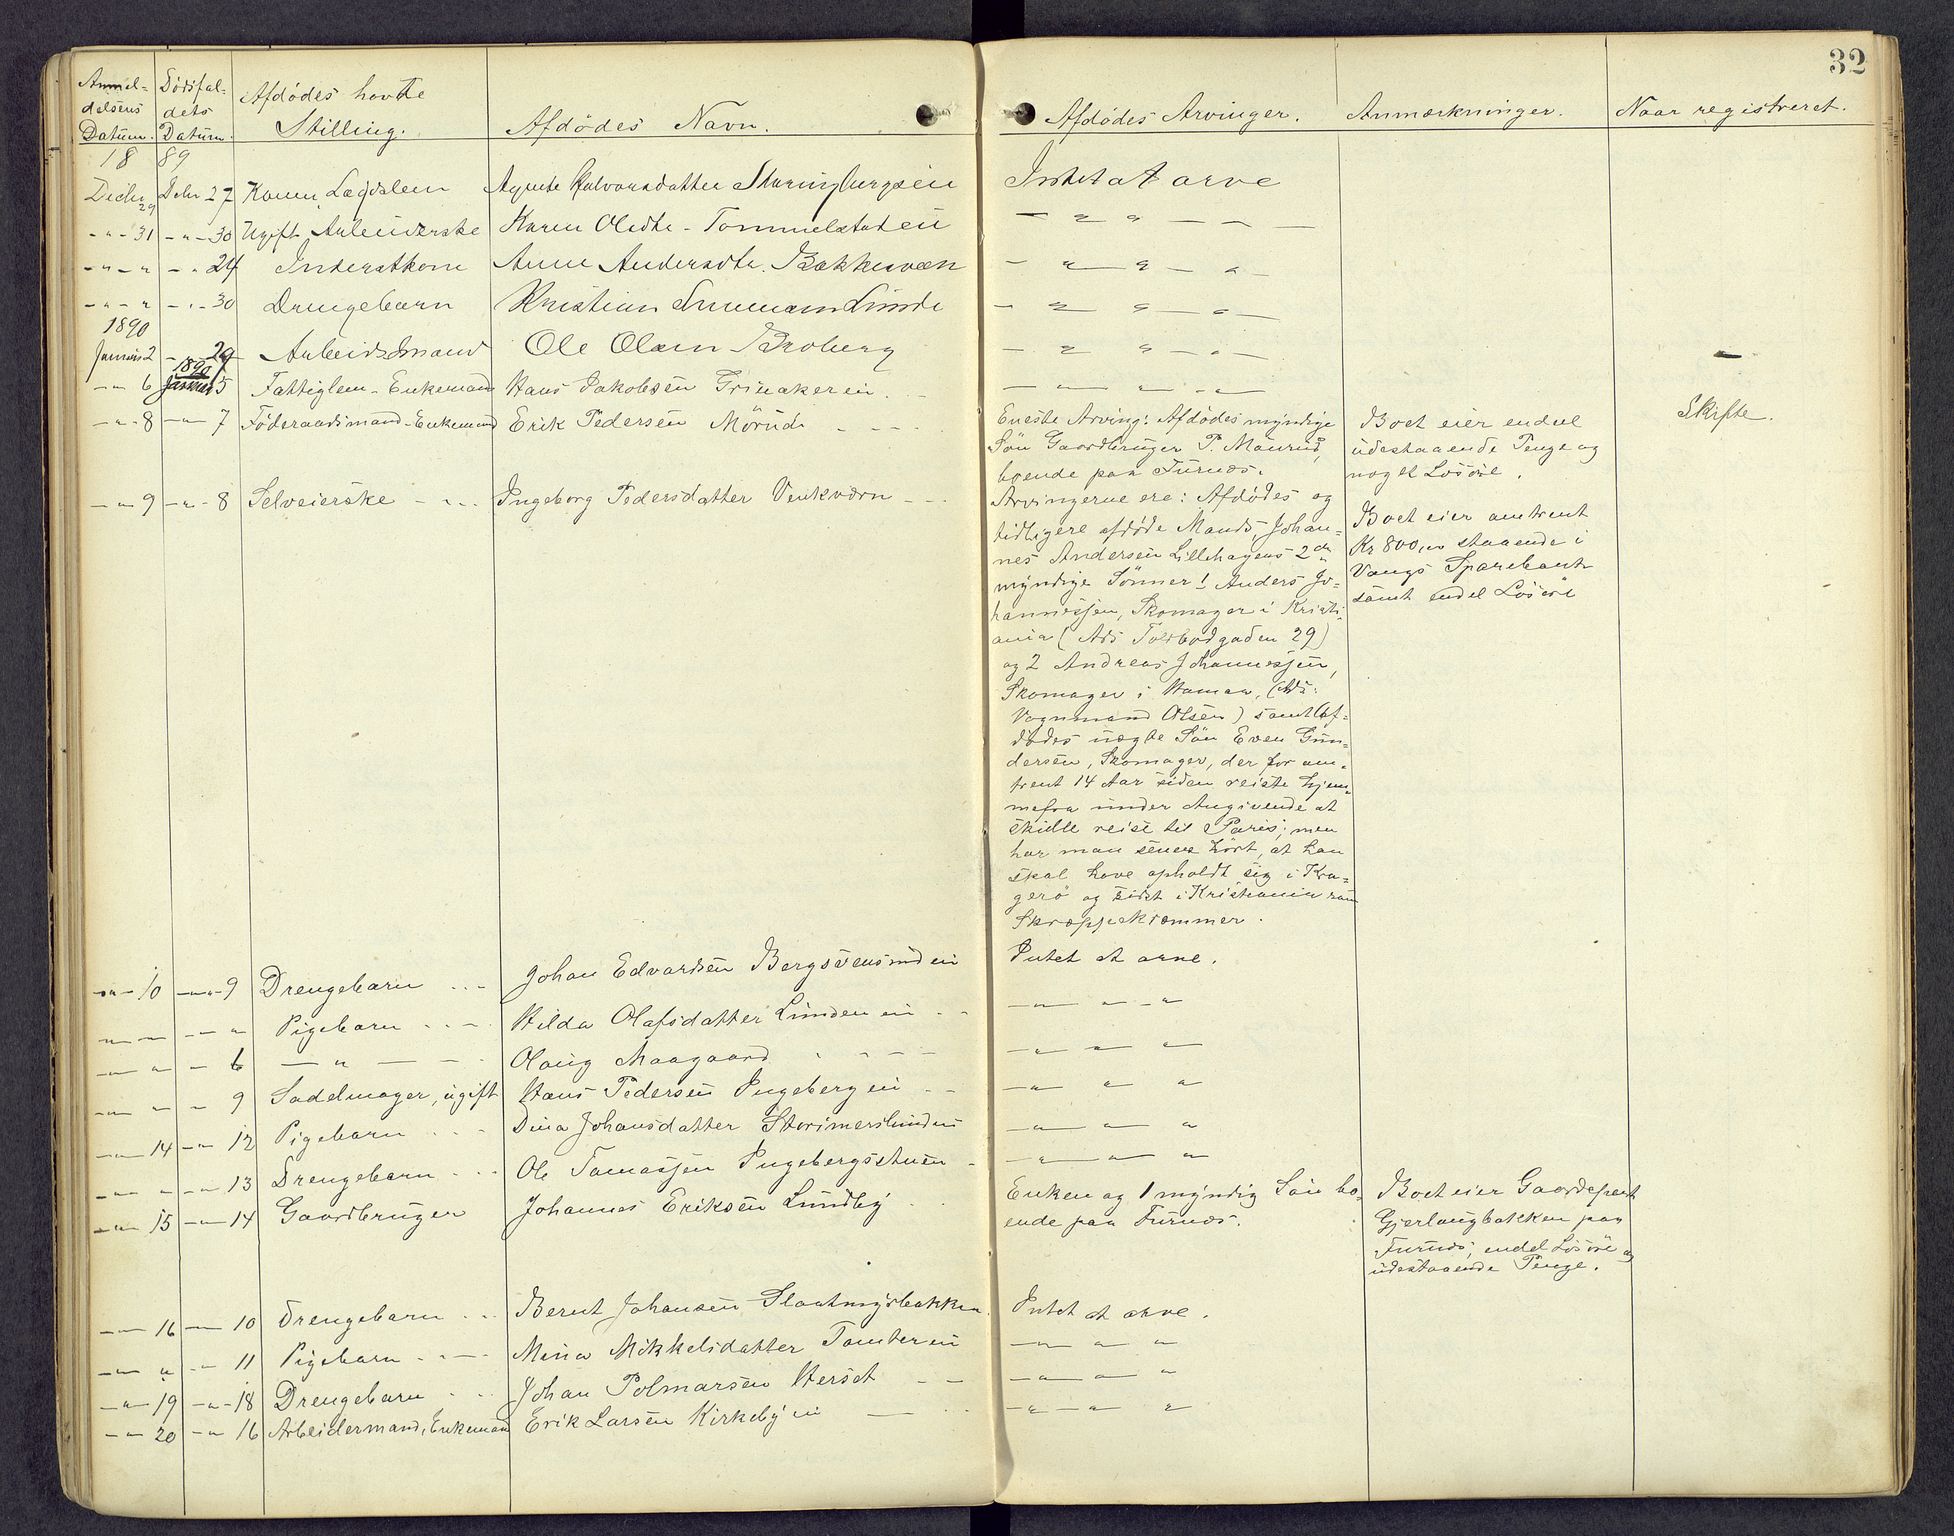 32
Anmel- Dödsfal- Afdödes havte
delsens dets Stilling. Afdödes Navn. Afdödes Arvinger. Anmærkninger. Naar registreret.
Datum. Datum.
18 89
Decbr 29 Dcbr 27 Agnete Halvorsdatter Intet at arve
-"- 31 -"- 30 Ugift Arbeiderske Karen Olsdtr. Tommelstadeie — " " — —
-"-" -"- 24 Inderstkone Anne Andersdtr. Bakkesvæen — " " — " —
-"-" -"- 30 Drengebarn Kristian Lunde — " " — " —
1890
Januar 2 - 29 Arbeidsmand Ole Olsen Broberg — " " — " —
1890
-"- 6 Januar 5 Fattiglem - Enkemand Hans Jakobsen Grinakereie. — " " - " —
-"- 8 -"- 7 Föderaadsmand - Enkemand Erik Pedersen Mörud
Eneste Arving: Afdödes myndige Boet eier endel Skifte.
Sön Gaardbruger P. Maurud, udestaaende Penge og
boende paa Furnæs. noget Lösöre.
-"- 9 -"- 8 Selveierske Ingeborg Pedersdatter Venkværn
Arvingerne ere: Afdödes og Boet eier omtrent
tidligere afdöde Mands, Johan- Kr 800,00 staaende i
nes Andersen Lillehagens 2de Vangs Sparebank
myndige Sönner: Anders Jo- samt endel Lösöre
hannessen, Skomager i Kristi-
ania (Ads Toldbodgaden 29)
og 2 Andreas Johannessen,
Skomager i Hamar, (Ads:
Vognmand Olsen) samt Af-
dödes uægte Sön Even Gun-
dersen, Skomager, der for om-
trent 14 Aar siden reiste hjem-
mefra under Angivende at
skulle reise til Paris; men
har man senere hört, at han
skal have opholdt sig i Kra-
gerö og sidst i Kristiania som
Skræppekræmmer.
-"- 10 -"- 9 Drengebarn Johan Edvardsen Bergsvensrudeie Intet at arve.
-"- — -"- " Pigebarn Hilda Olafsdatter Lundeneie — " " - "
-"- " - 6 — " — Olaug Aaagaard — " — " — "
-"- — - 9 Sadelmager, ugift Hans Pedersen Ingebergeie — " — " "
-"- 14 -"- 12 Pigebarn Dina Johansdatter — " — " "
-"- " -"- 13 Drengebarn Ole Tomassen Ingebergsstuen — " — " "
-"- 15 -"- 14 Gaardbruger Johannes Eriksen Lundby Enken og 1 myndig Sön bo- Boet eier Gaardepart
ende paa Furnæs. Gjerlaugbakken paa
Furnæs, endel Lösöre og
udestaaende Penge.
-"- 16 -"- 10 Drengebarn Bernt Johansen Slaatmyrbakken Intet at arve.
-"- " -"- 11 Pigebarn Mina Mikkelsdatter Tomtereie — " " — "
-"- 19 -"- 18 Drengebarn Johan Polmarsen Herset — " — " "
-"- 20 -"- 16 Arbeidermand, Enkemand Erik Larsen Kirkebyeie — " — " "